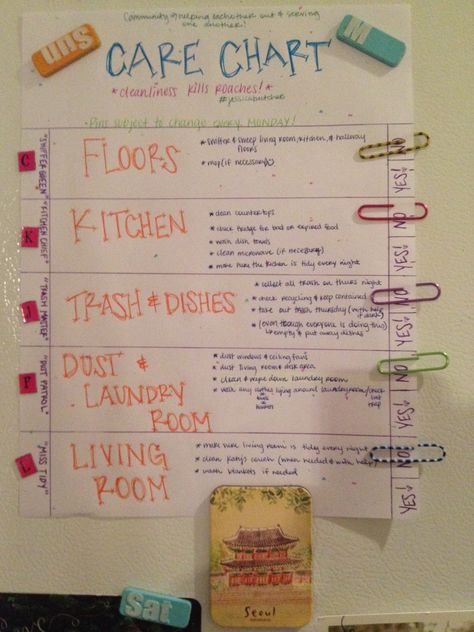 Community = helping eachother out & serving
one another!
uns
M
CARE CHART
*cleanliness kills roaches!*
#jessicabutcher
*Pins subject to change every MONDAY!
C
"SWIFFER QUEEN"
FLOORS
*swiffer & sweep living room, kitchen, & hallway
floors
*mop (if necessary)
NO
YES!
K
"KITCHEN CHIEF"
KITCHEN
*clean countertops
*check fridge for bad or expired food
*wash dish towels
*clean microwave (if necessary)
*make sure the kitchen is tidy every night
NO
YES!
J
"TRASH MASTER"
TRASH & DISHES
*collect all trash on thurs night
*check recycling & keep contained
*take out trash thursday (with help
if needed)
*(even though everyone is doing this)
empty & put away dishes
NO
YES!
P
"DUST PATROL"
DUST &
LAUNDRY
ROOM
*dust windows & ceiling fans
*dust living room & desk area
*clean & wipe down laundry room
*wash any clothes lying around laundry room/check
lint
trap
NO
YES!
L
"MISS TIDY"
LIVING
ROOM
*make sure living room is tidy every night
*clean couch (when needed & with help)
*wash blankets if needed
NO
YES!
Seoul
Sat